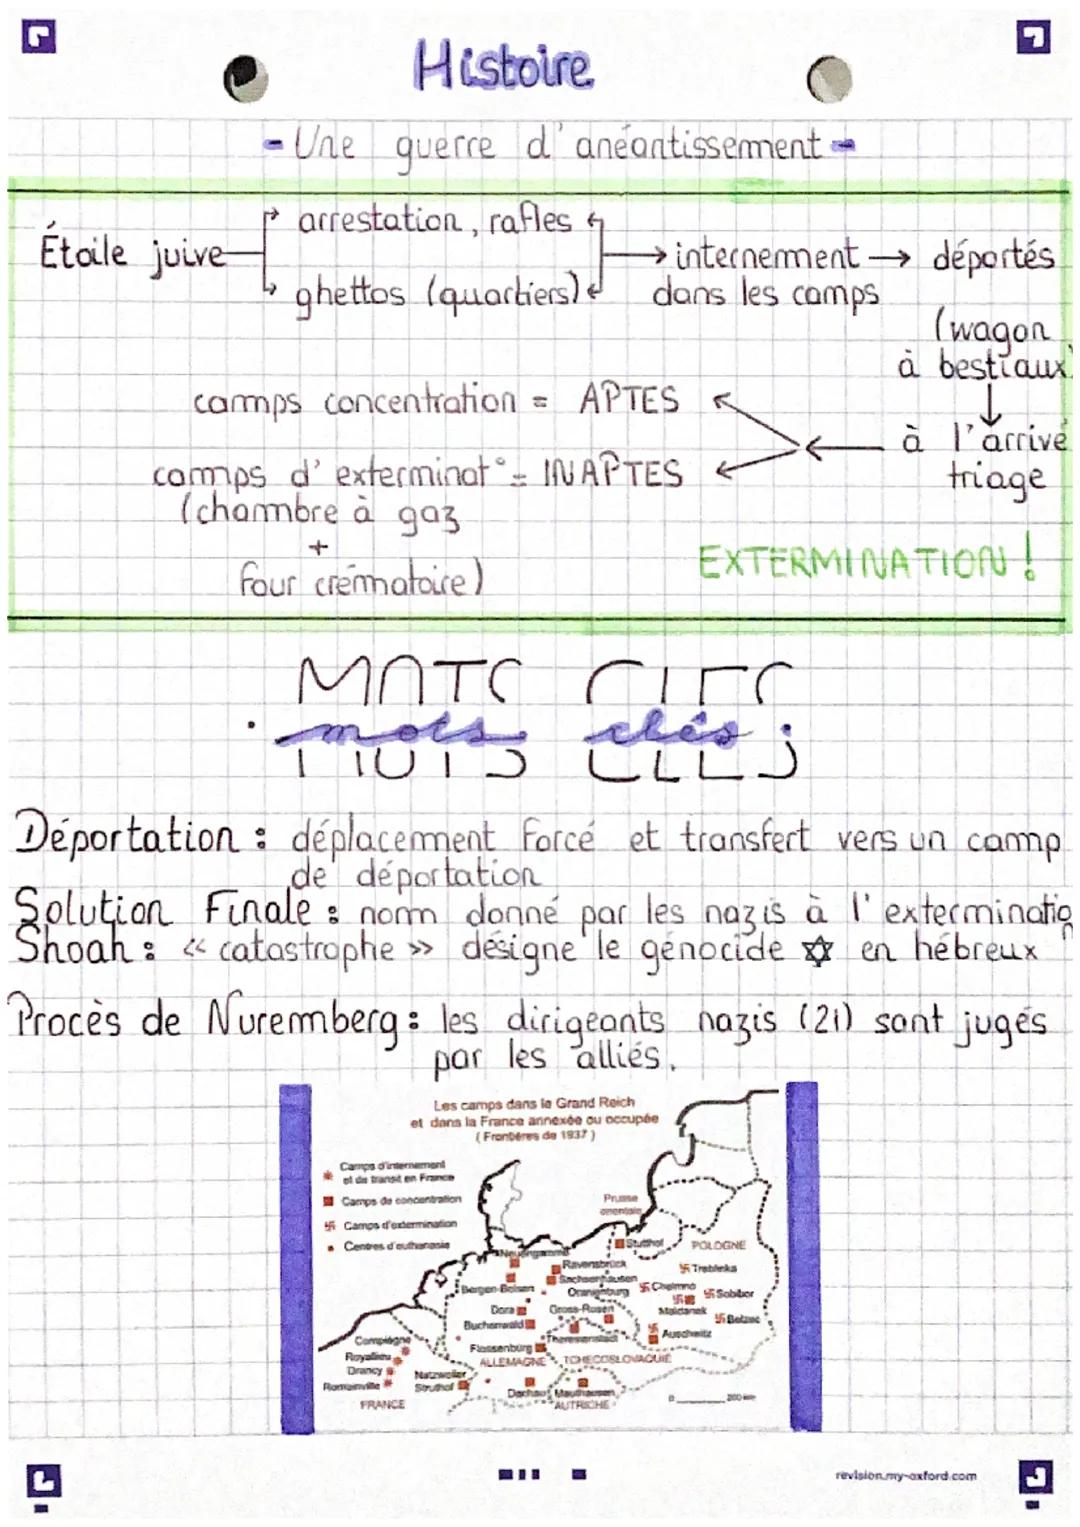 Histoire
- Une guerre d'anéantissement -
Étoile juive
arrestation, rafles
ghettos (quartiers)
internement → déportés
dans les camps
(wagon
à bestiaux)
camps concentration = APTES
à l'arrivé
triage
camps d'exterminat° = INAPTES
(chambre à gaz
+
four crématoire)
EXTERMINATION !
MOTS CLES
mots clés :
Déportation : déplacement forcé et transfert vers un camp
de déportation
Solution Finale : nom donné par les nazis à l'extermination
Shoah : « catastrophe » désigne le génocide ✡ en hébreux
Procès de Nuremberg : les dirigeants nazis (21) sont jugés
par les alliés.
Les camps dans le Grand Reich
et dans la France annexée ou occupée
(Frontières de 1937)
Camps d'internement
et de transit en France
Camps de concentration
Camps d'extermination
Centres d'euthanasie
Prusse
orientale
Stutthof
POLOGNE
Neuengamme
Ravensbrück
Treblinka
Sachsenhausen
Bergen-Belsen
Oranienburg
Chelmno
Sobibor
Dora
Gross-Rosen
Maïdanek
Belzec
Buchenwald
Auschwitz
Compiègne
Royallieu
Theresienstadt
Flossenbürg
ALLEMAGNE
TCHECOSLOVAQUIE
Drancy
Romainville
Natzweiler
Struthof
Dachau
Mauthausen
FRANCE
AUTRICHE
0
200 km
revision.my-oxford.com